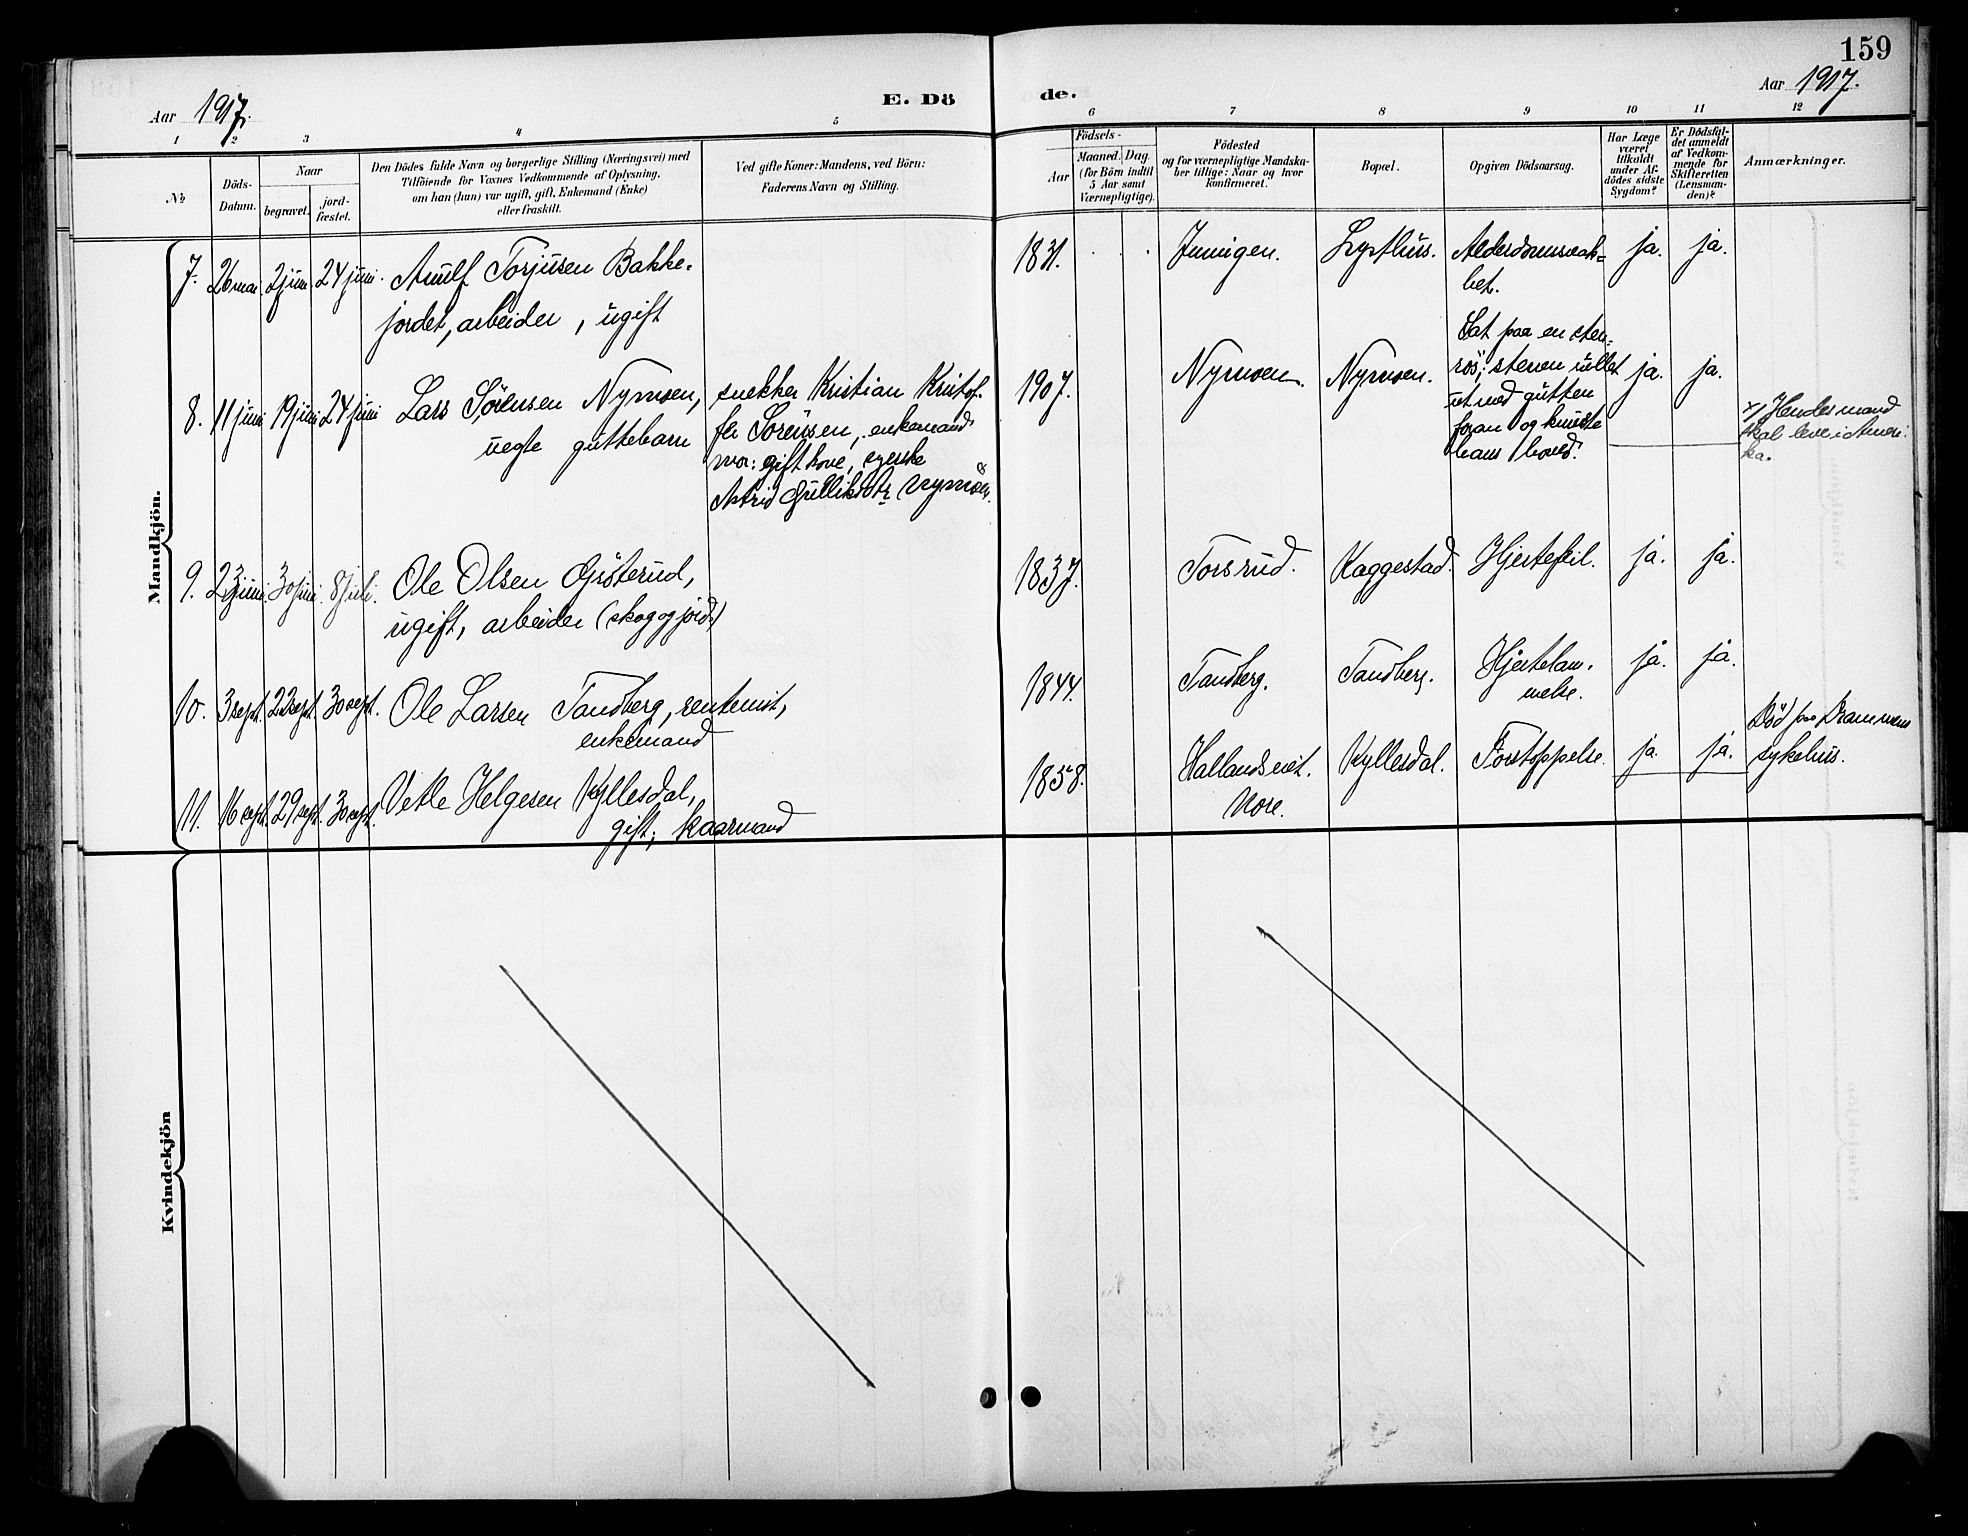 159
Aar 1917.
E. Dö
de.
Aar 1917.
1
2
3
4
5
6
7
8
9
10
11
12
№
Döds-
Datum.
Naar
begravet.
jord-
fæstet.
Den Dödes fulde Navn og borgerlige Stilling (Næringsvei) med
Tilföiende for Voxnes Vedkommende af Oplysning,
om han (hun) var ugift, gift, Enkemand (Enke)
eller fraskilt.
Ved gifte Koner: Mandens, ved Börn:
Faderens Navn og Stilling.
Födsels-
Aar
Maaned.
Dag.
(for Börn indtil
5 Aar samt
Værnepligtige).
Födested
og for værnepligtige Mandska-
ber tillige: Naar og hvor
konfirmeret.
Bopæl.
Opgiven Dödsaarsag.
Har Læge
været
tilkaldt
under Af-
dödes sidste
Sygdom?
Er Dödsfal-
det anmeldt
af Vedkom-
mende for
Skifteretten
(Lensman-
den)?
Anmærkninger.
Mandkjön.
7. 26 mai. 2 juni 24 juni. Arnulf Torjusen Bakke-
jordet, arbeider, ugift
1831. Lysthus. Alderdomssvak-
het. ja. ja.
8. 11 juni 19 juni 24 juni Lars Sørensen Nymoen,
uegte guttebarn
snekker Kristian Kristof-
fer Sørensen, enkemand
mor: gift kone,
Astrid Gulliksdtr Nymoen.
1907. Nymoen. Nymoen. Sat paa en sten-
rös; stenen rullet
ut med gutten
foran og knuste
hans hoved. ja. ja.
x/ Hendes mand
skal leve i Ameri-
ka.
9. 23 juni. 30 juni. 8 juli. Ole Olsen Gröterud,
ugift, arbeider (skog og jord.)
1837. Torsrud. Kaggestad. Hjertefeil. ja. ja.
10. 3 sept. 22 sept. 30 sept. Ole Larsen Tandberg, rentenist,
enkemand
1844. Tandberg. Tandberg. Hjertelam-
melse. ja. ja.
11. 16 sept. 29 sept. 30 sept. Vetle Helgesen Kyllesdal,
gift, kaarmand
1858. Hallandseiet.
Nore. Kyllesdal. Forstoppelse. ja. ja. Död paa Drammens
sykehus.
Kvindekjön